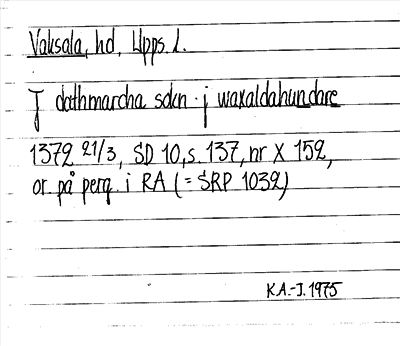 Vaksala, hd, Upps. l.
J dathmarcha sokn j waxaldahundare
1372 21/3, SD 10, s. 137, nr X 152,
or. på perg. i RA (= SRP 1032)
K.A.-J. 1975